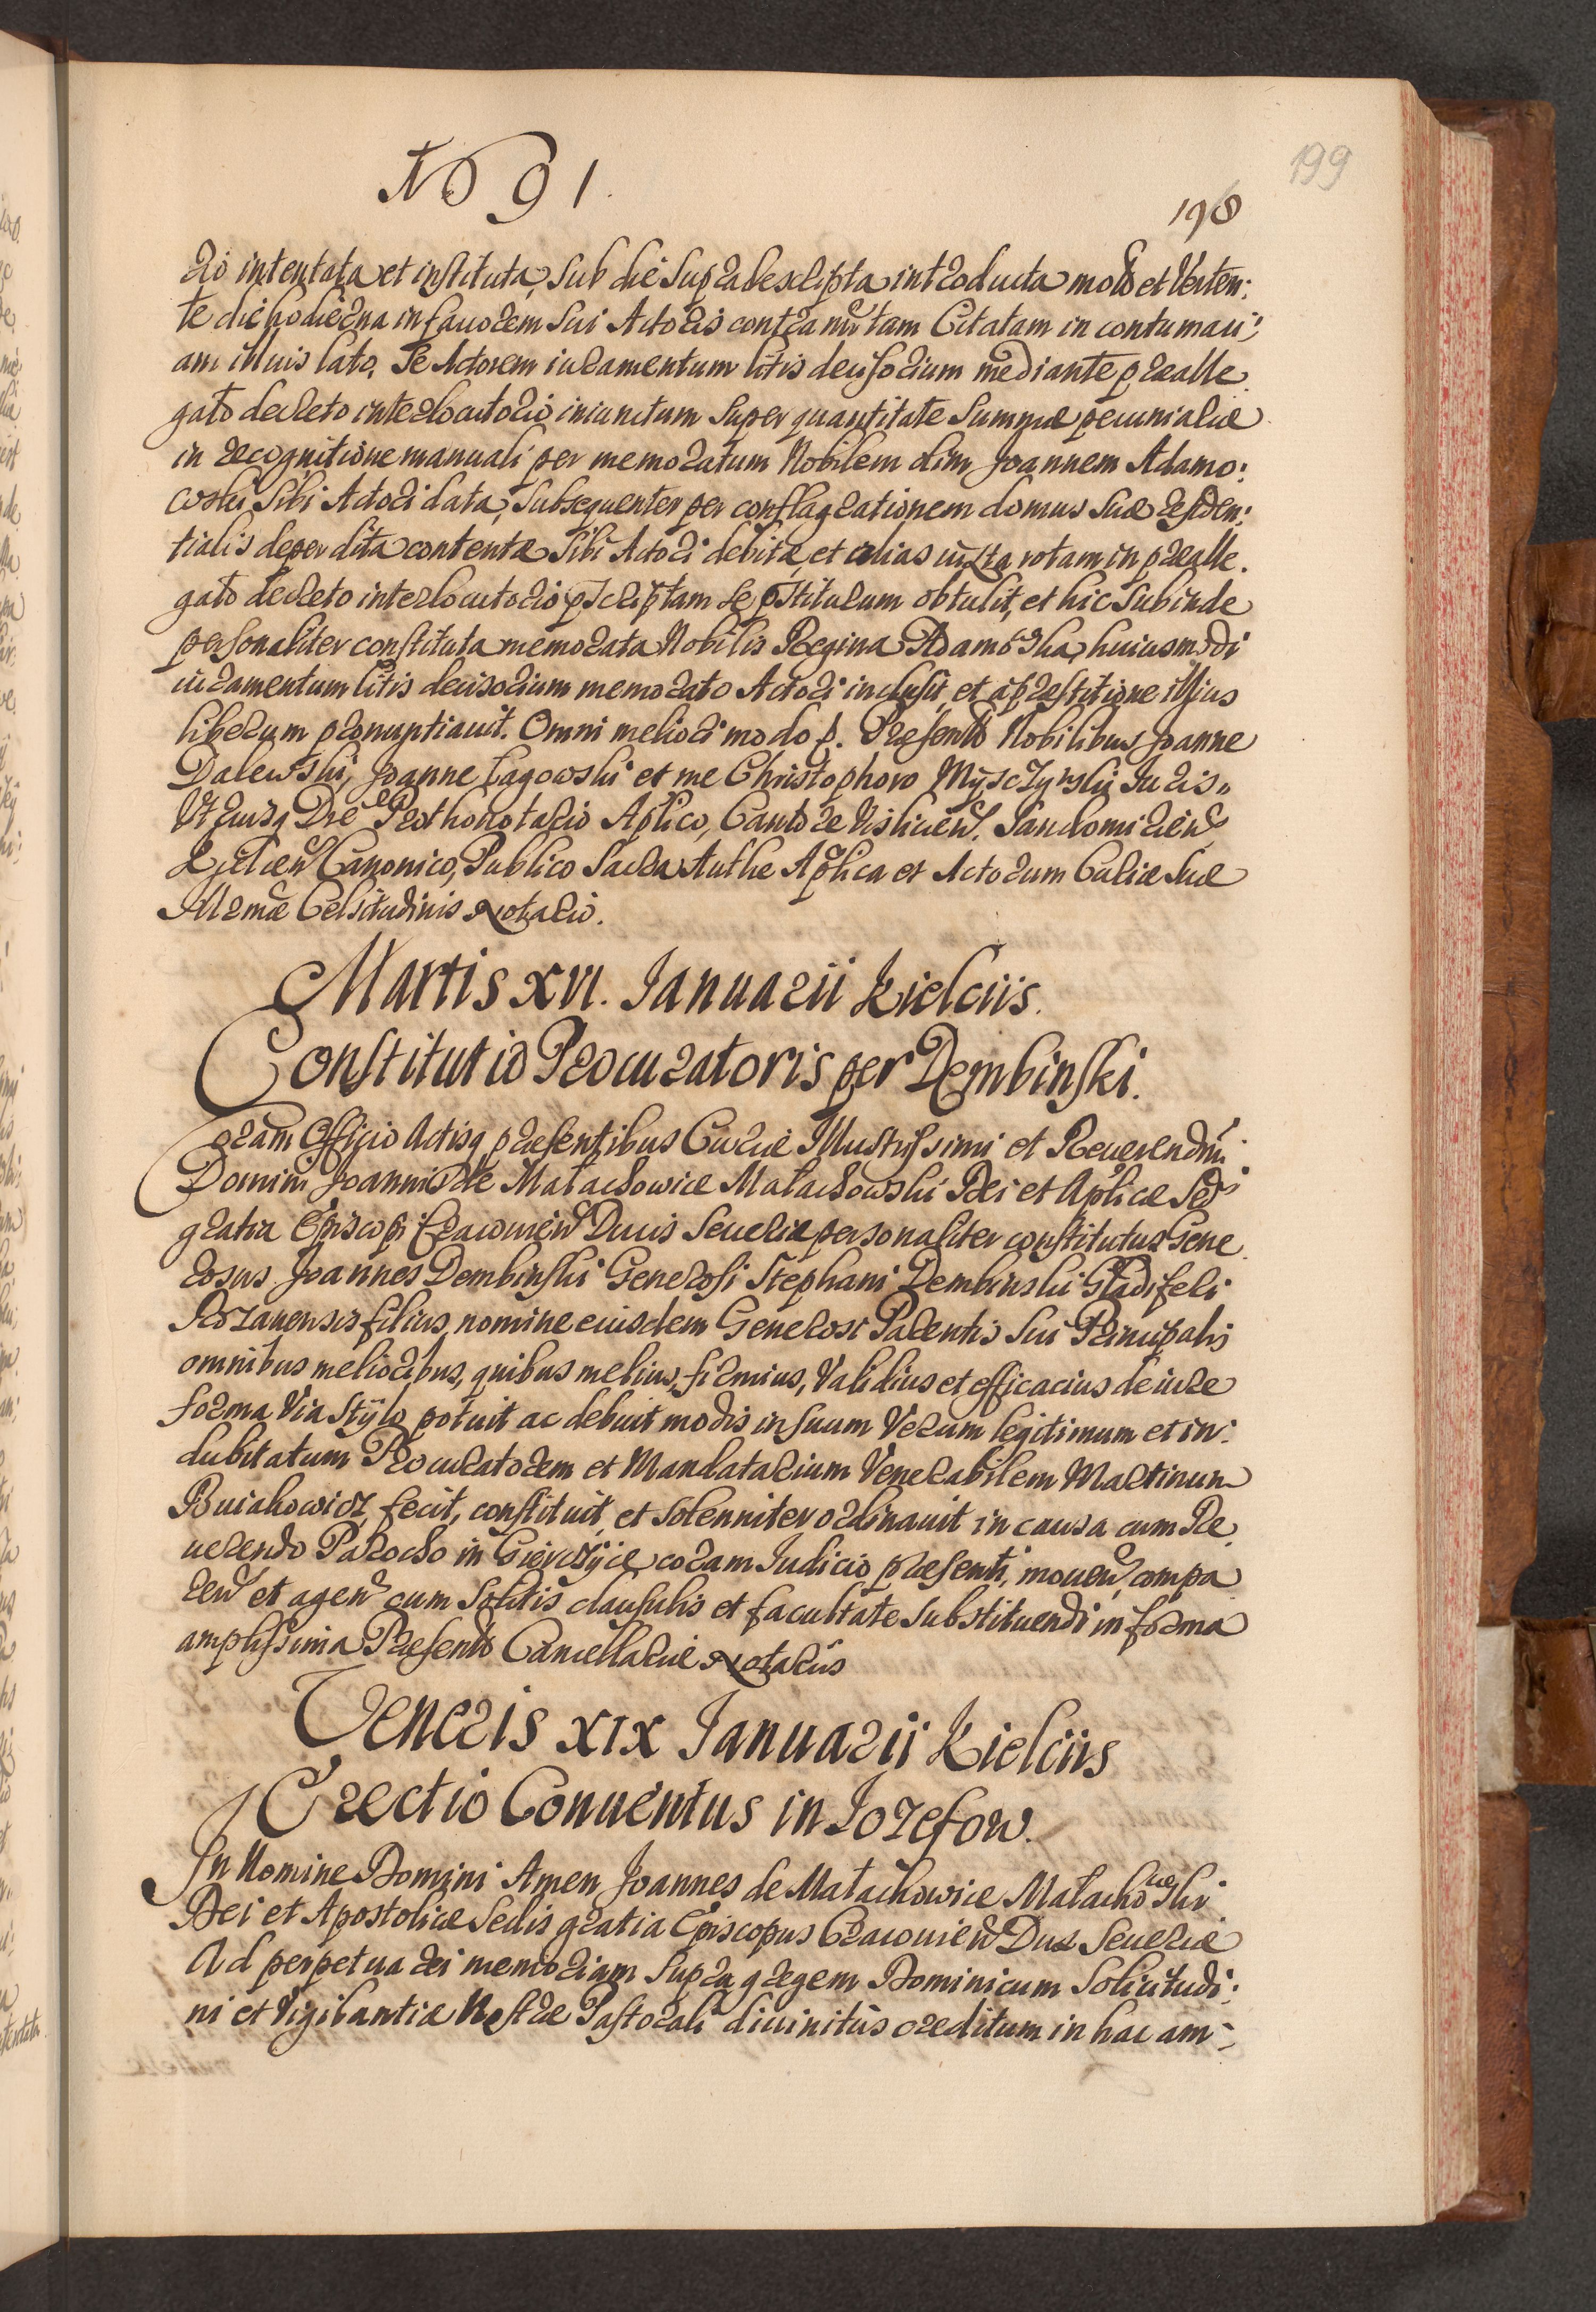 199
No 91.
198
rio intentata et instituta, sub die supradescripta introducta moto et verten:
te die hodierna in favorem sui Actoris contra nrtam Citatam in contumaci:
am illius lato. Se Actorem iuramentum litis decisorium mediante prealle
gato decreto interlocutorio iniunctum super quantitate summæ pecuniariæ
in recognitione manuali per memoratum Nobilem olim Joannem Adamo:
coski sibi Actori data, subsequenter per conflagrationem domus suæ residen:
tialis deperdita contentæ sibi Actori debitæ, et alias iuxta rotam in prealle.
gato decreto interlocutorio pscriptam se pstiturum obtulit, et hic subinde
personaliter constituta memorata Nobilis Regina Adamoska, huiusmodi
iuramentum litis decisorium memorato Actori indulsit, et a prestitione illius
liberum pronuntiauit. Omni meliori modo p. Presentib Nobilibus Joanne
Dalewski, Joanne Łagowski et me Christophoro Mysczynski Juris
Utriusq Dre Prothonotario Aplico, Cantore Visliciens. Sandomirien
Kielcien Canonico, Publico Sacra Authe Aplica et Actorum Curiæ suæ
Illrmæ Celsitudinis Notario.
Martis XVI. Januarii Kielciis.
Constitutio Procuratoris per Dembinski.
Coram Officio Actisq præsentibus Curiæ Illustrissimi et Reuerendmi
Domini Joannis de Małachowice Małachowski Dei et Aplicæ Sedis
gratia Episcopi Cracouien Ducis Seueriæ personaliter constitutus Gene
rosus Joannes Dembinski Generosi Stephani Dembinski Gladiferi
Rozanensis filius, nomine eiusdem Generosi Parentis sui Principalis
omnibus melioribus, quibus melius, firmius, validius et efficacius de iure
forma via stylo potuit ac debuit modis in suum verum legitimum et in:
dubitatum Procuratorem et Mandatarium Venerabilem Martinum
Buiakowicz fecit, constituit, et solenniter ordinauit in causa cum Re
uerendo Parocho in Gierczyce coram Judicio præsenti, mouen, compa
ren et agen cum solitis clausulis et facultate substituendi in forma
amplissima Presentib Cancellariæ Notariis
Veneris XIX Januarii Kielciis
Erectio Conuentus in Jozefow.
In Nomine Domini Amen Joannes de Małachowice Małachowski
Dei et Apostolicæ Sedis gratia Episcopus Cracouien Dux Seueriæ
Ad perpetua rei memoriam Supra gregem Dominicum Solicitudi:
ni et Vigilantiæ Nostræ Pastorali diuinitus creditum in hac am: